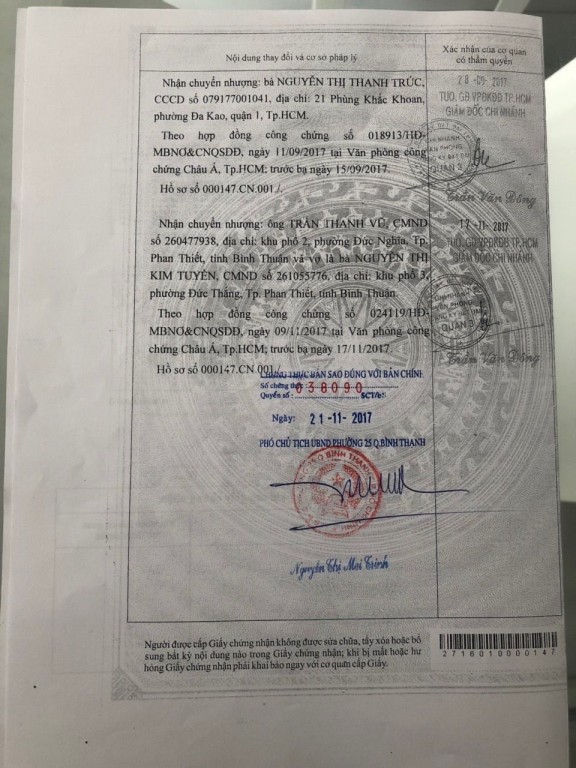 Nội dung thay đổi và cơ sở pháp lý
Xác nhận của cơ quan
có thẩm quyền
Nhận chuyển nhượng: bà NGUYỄN THỊ THANH TRÚC,
CCCD số 079177001041, địa chỉ: 21 Phùng Khắc Khoan,
phường Đa Kao, quận 1, Tp.HCM.
Theo hợp đồng công chứng số 018913/HĐ-
MBNƠ&CNQSDĐ, ngày 11/09/2017 tại Văn phòng công
chứng Châu Á, Tp.HCM; trước bạ ngày 15/09/2017.
Hồ sơ số 000147.CN.001./.
28 -09- 2017
TUQ. GĐ VPĐKĐĐ TP.HCM
GIÁM ĐỐC CHI NHÁNH
CHI NHÁNH
QUẬN 3
Trần Văn Đông
Nhận chuyển nhượng: ông TRẦN THANH VŨ, CMND
số 260477938, địa chỉ: khu phố 2, phường Đức Nghĩa, Tp.
Phan Thiết, tỉnh Bình Thuận và vợ là bà NGUYỄN THỊ
KIM TUYỀN, CMND số 261055776, địa chỉ: khu phố 3,
phường Đức Thắng, Tp. Phan Thiết, tỉnh Bình Thuận.
Theo hợp đồng công chứng số 024119/HĐ-
MBNƠ&CNQSDĐ, ngày 09/11/2017 tại Văn phòng công
chứng Châu Á, Tp.HCM; trước bạ ngày 17/11/2017.
Hồ sơ số 000147.CN.001./.
17 -11- 2017
TUQ. GĐ VPĐKĐĐ TP.HCM
GIÁM ĐỐC CHI NHÁNH
QUẬN 3
Trần Văn Đông
CHỨNG THỰC BẢN SAO ĐÚNG VỚI BẢN CHÍNH
Số chứng thực: 038090
Quyển số: SCT/bs
Ngày: 21 -11- 2017
PHÓ CHỦ TỊCH UBND PHƯỜNG 25 Q.BÌNH THẠNH
Nguyễn Thị Mai Trinh
Người được cấp Giấy chứng nhận không được sửa chữa, tẩy xóa hoặc bổ
sung bất kỳ nội dung nào trong Giấy chứng nhận; khi bị mất hoặc hư
hỏng Giấy chứng nhận phải khai báo ngay với cơ quan cấp Giấy.
2716010000147